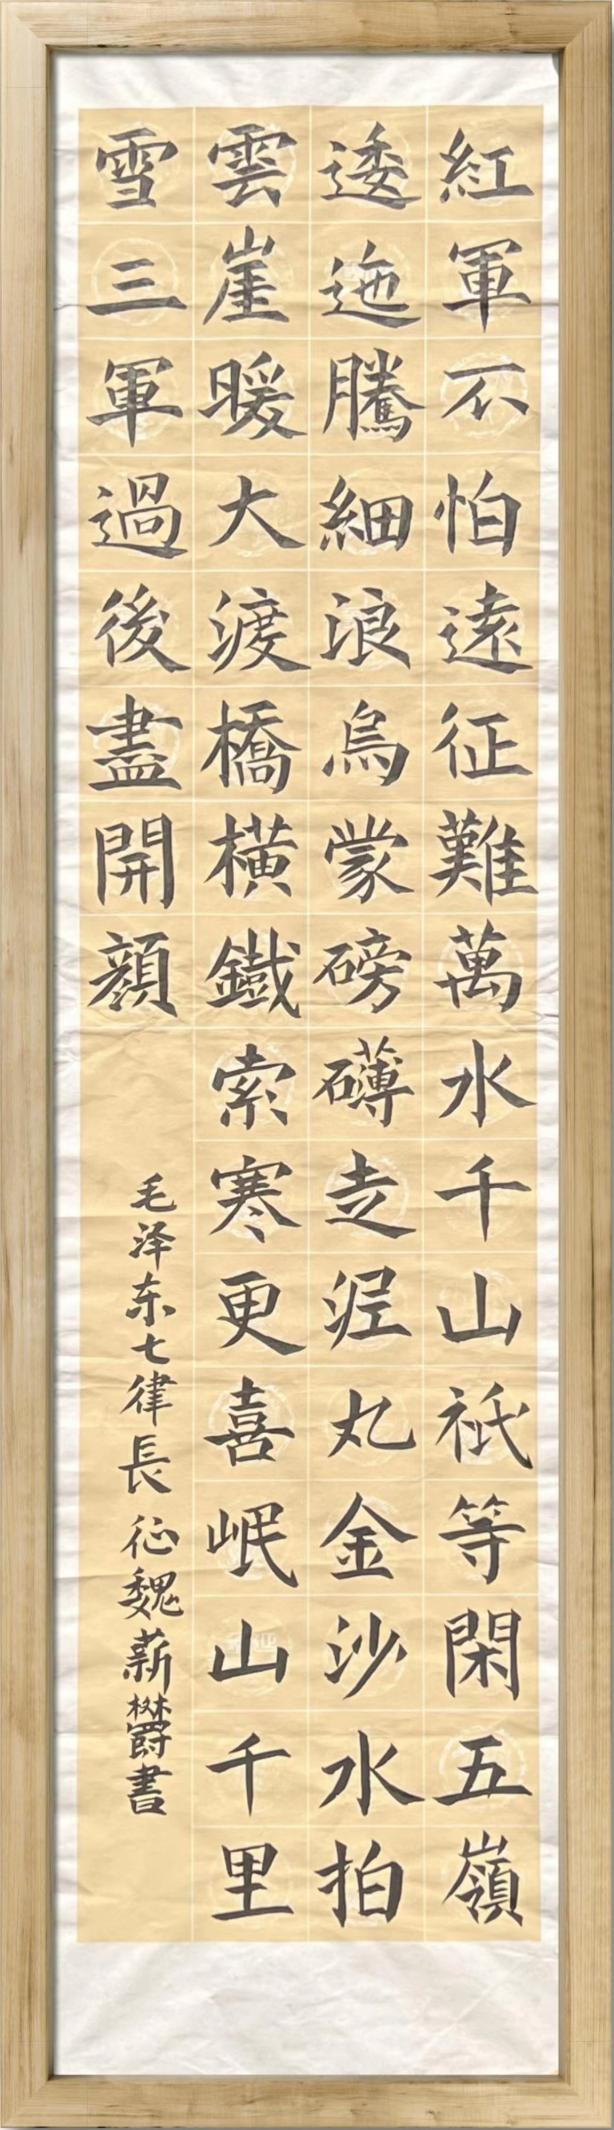 紅軍不怕遠征難萬水千山祇等閑五嶺
逶迤騰細浪烏蒙磅礴走泥丸金沙水拍
雲崖暖大渡橋橫鐵索寒更喜岷山千里
雪三軍過後盡開顏
毛泽东七律長征魏薪欝書